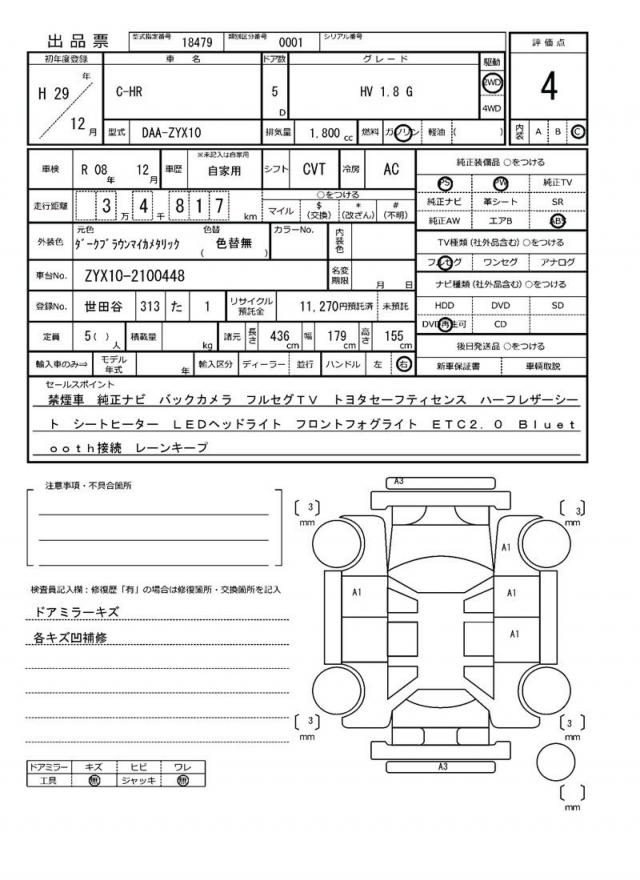 出品票 型式指定番号 18479 類別区分番号 0001 シリアル番号
初年度登録 車 名 ドア数 グレード 駆動 評価点
H 29 年 12 月 C-HR 5 D HV 1.8 G 2WD 4WD 4
型式 DAA-ZYX10 排気量 1.800 cc 燃料 ガソリン 軽油 ( ) 内装 A B C
車検 R 08 年 12 月 車歴 ※未記入は自家用 自家用 シフト CVT 冷房 AC 純正装備品 ○をつける
PS PW 純正TV
走行距離 3 万 4 千 8 1 7 km ○をつける
マイル $ (交換) * (改ざん) # (不明)
純正ナビ 革シート SR
純正AW エアB ABS
外装色 元色 ﾀﾞｰｸﾌﾞﾗｳﾝﾏｲｶﾒﾀﾘｯｸ 色替 ( 色替無 ) カラーNo. 内装色
TV種類 (社外品含む) ○をつける
フルセグ ワンセグ アナログ
車台No. ZYX10-2100448 名変期限 月 日
ナビ種類 (社外品含む) ○をつける
HDD DVD SD
登録No. 世田谷 313 た 1 リサイクル預託金 11,270円預託済 未預託
DVD再生可 CD
定員 5( ) 人 積載量 kg 諸元 長さ 436 cm 幅 179 cm 高さ 155 cm
後日発送品 ○をつける
輸入車のみ⇒ モデル年式 年 輸入区分 ディーラー 並行 ハンドル 左 右
新車保証書 車輌取説
セールスポイント
禁煙車 純正ナビ バックカメラ フルセグTV トヨタセーフティセンス ハーフレザーシー
ト シートヒーター LEDヘッドライト フロントフォグライト ETC2.0 Bluet
ooth接続 レーンキープ
注意事項・不具合箇所
検査員記入欄：修復歴「有」の場合は修復箇所・交換箇所を記入
ドアミラーキズ
各キズ凹補修
ドアミラー キズ ヒビ ワレ
工具 無 ジャッキ 無
A3
[ 3 ] mm
[ 3 ] mm
A1
A1
A1
A1
[ 3 ] mm
[ 3 ] mm
A3
[ ] mm